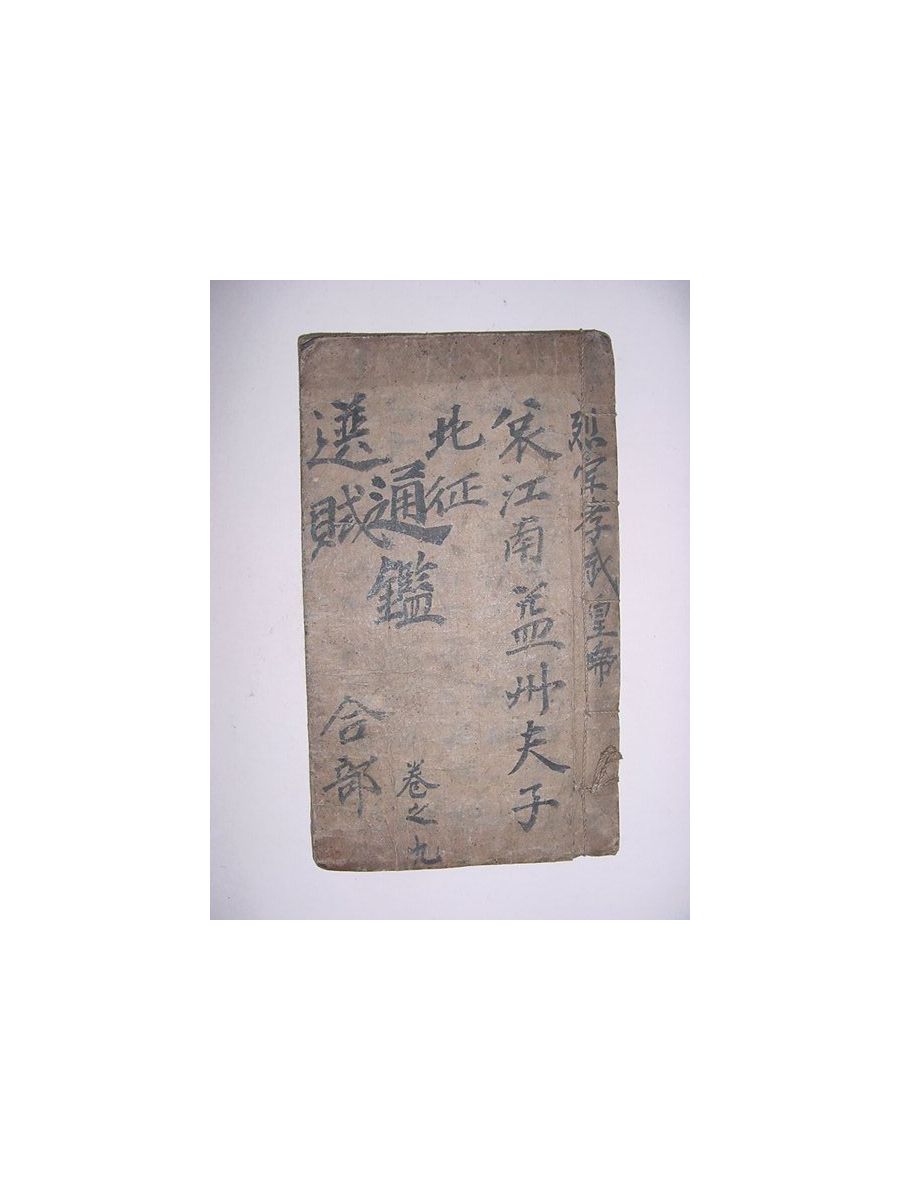 烈宗孝武皇帝
哀江南益州夫子
北征
通鑑
卷之九
選賦
合部